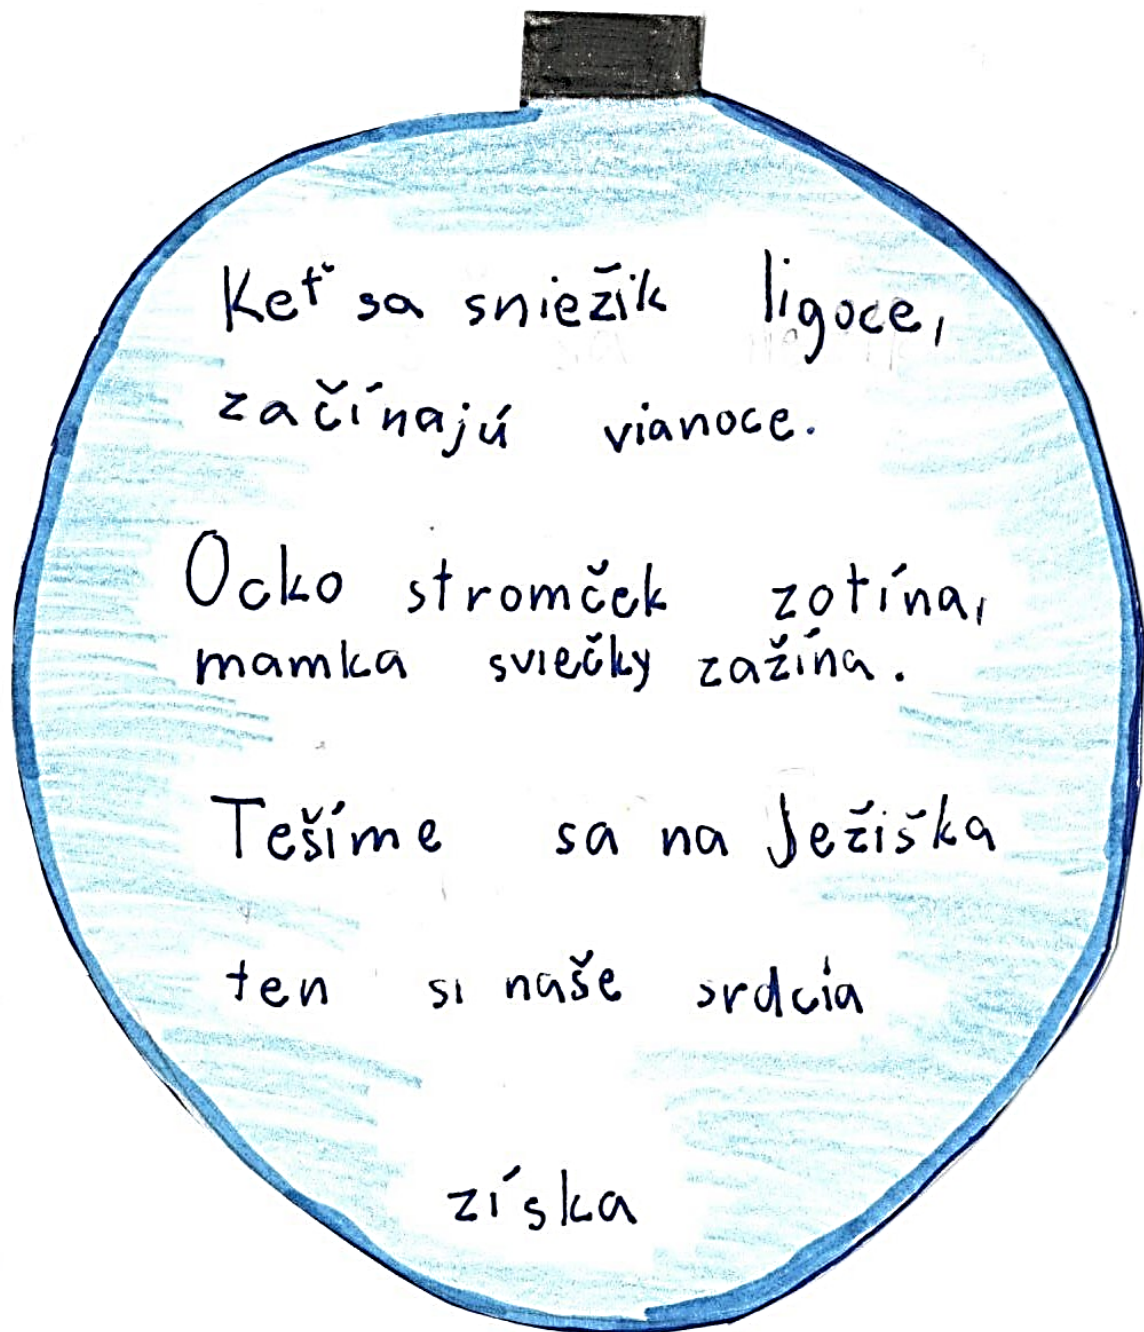 Keť sa sniežik ligoce,
začínajú vianoce.
Ocko stromček zotína,
mamka sviečky zažína.
Tešíme sa na Ježiška
ten si naše srdcia
získa